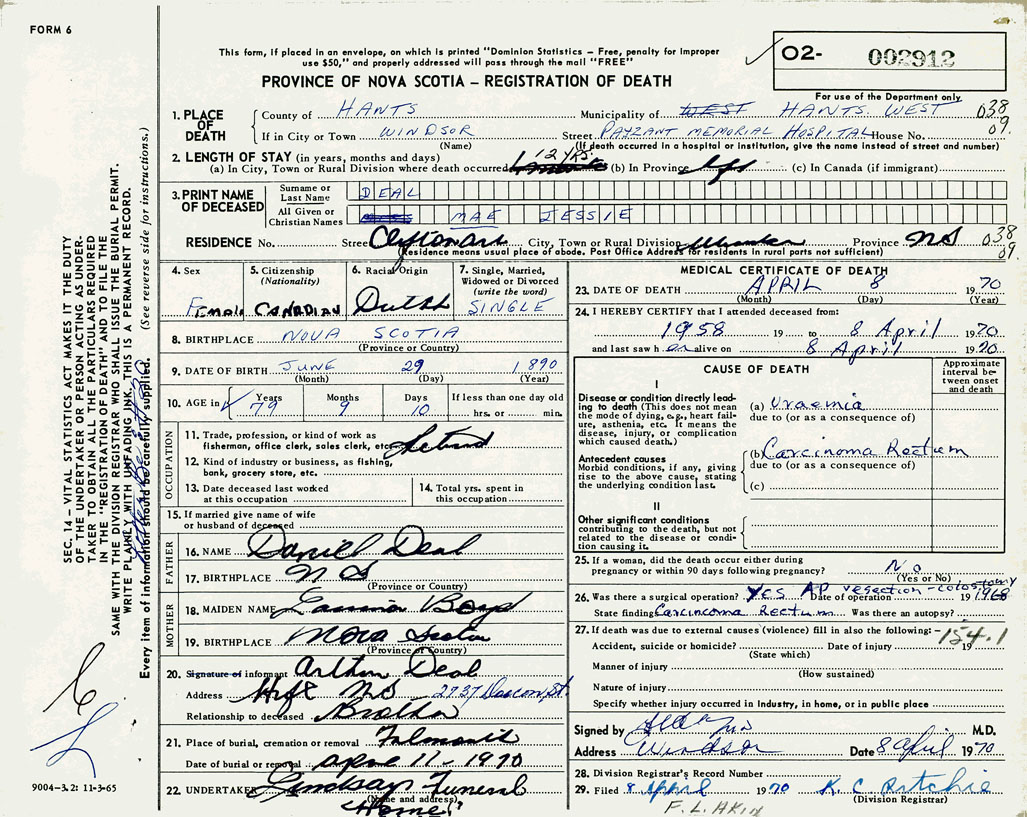 FORM 6
This form, if placed in an envelope, on which is printed "Dominion Statistics – Free, penalty for improper
use $50," and properly addressed will pass through the mail "FREE"
PROVINCE OF NOVA SCOTIA – REGISTRATION OF DEATH
O2- 002912
For use of the Department only
1. PLACE OF DEATH County of HANTS Municipality of WEST HANTS WEST 038
If in City or Town WINDSOR Street PAYZANT MEMORIAL HOSPITAL House No. 09.
(Name) (If death occurred in a hospital or institution, give the name instead of street and number)
2. LENGTH OF STAY (in years, months and days) 12 YRS.
(a) In City, Town or Rural Division where death occurred (b) In Province (c) In Canada (if immigrant)
3. PRINT NAME OF DECEASED Surname or Last Name DEAL
All Given or Christian Names MAE JESSIE
RESIDENCE No. Street City, Town or Rural Division Province NS 038
(Residence means usual place of abode. Post Office Address for residents in rural parts not sufficient) 09.
4. Sex Female
5. Citizenship (Nationality) CANADIAN
6. Racial Origin Dutch
7. Single, Married, Widowed or Divorced (write the word) SINGLE
8. BIRTHPLACE NOVA SCOTIA
(Province or Country)
9. DATE OF BIRTH JUNE 29 1890
(Month) (Day) (Year)
10. AGE in Years Months Days If less than one day old
79 9 10 hrs. or min.
OCCUPATION
11. Trade, profession, or kind of work as
fisherman, office clerk, sales clerk, etc. Retired
12. Kind of industry or business, as fishing,
bank, grocery store, etc.
13. Date deceased last worked
at this occupation
14. Total yrs. spent in
this occupation
15. If married give name of wife
or husband of deceased
FATHER
16. NAME Daniel Deal
17. BIRTHPLACE N S
(Province or Country)
MOTHER
18. MAIDEN NAME Boyd
19. BIRTHPLACE Nova Scotia
(Province or Country)
20. Signature of informant Arthur Deal
Address Hfx NS 2737 St.
Relationship to deceased Brother
21. Place of burial, cremation or removal Falmouth
Date of burial or removal April 11 - 1970
22. UNDERTAKER Lindsay Funeral
(Name and address) Home
MEDICAL CERTIFICATE OF DEATH
23. DATE OF DEATH APRIL 8 1970
(Month) (Day) (Year)
24. I HEREBY CERTIFY that I attended deceased from:
1958 19 to 8 April 1970
and last saw her alive on 8 April 1970
CAUSE OF DEATH
Approximate interval between onset and death
I
Disease or condition directly leading
to death (This does not mean
the mode of dying, e.g., heart failure,
asthenia, etc. It means the
disease, injury, or complication
which caused death.)
(a) Uraemia
due to (or as a consequence of)
Antecedent causes
Morbid conditions, if any, giving
rise to the above cause, stating
the underlying condition last.
(b) Carcinoma Rectum
due to (or as a consequence of)
(c)
II
Other significant conditions
contributing to the death, but not
related to the disease or condition
causing it.
25. If a woman, did the death occur either during
pregnancy or within 90 days following pregnancy? No
(Yes or No)
26. Was there a surgical operation? Yes AP resection - colostomy Date of operation 19 1968
State finding Carcinoma Rectum Was there an autopsy?
27. If death was due to external causes (violence) fill in also the following: 154.1
Accident, suicide or homicide? Date of injury 19
(State which)
Manner of injury
(How sustained)
Nature of injury
Specify whether injury occurred in industry, in home, or in public place
Signed by M.D.
Address Windsor Date 8 April 1970
28. Division Registrar's Record Number
29. Filed 8 April 1970 K. C. Ritchie
(Division Registrar)
F. L. AKIN
SEC. 14 – VITAL STATISTICS ACT MAKES IT THE DUTY
OF THE UNDERTAKER OR PERSON ACTING AS UNDERTAKER
TO OBTAIN ALL THE PARTICULARS REQUIRED
IN THE "REGISTRATION OF DEATH" AND TO FILE THE
SAME WITH THE DIVISION REGISTRAR WHO SHALL ISSUE THE BURIAL PERMIT.
WRITE PLAINLY WITH UNFADING INK. THIS IS A PERMANENT RECORD.
Every item of information should be carefully supplied. (See reverse side for instructions.)
9004-3.2: 11-3-65